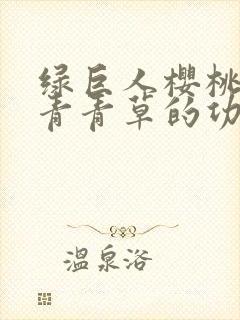 绿巨人樱桃
青青草的功
温泉浴